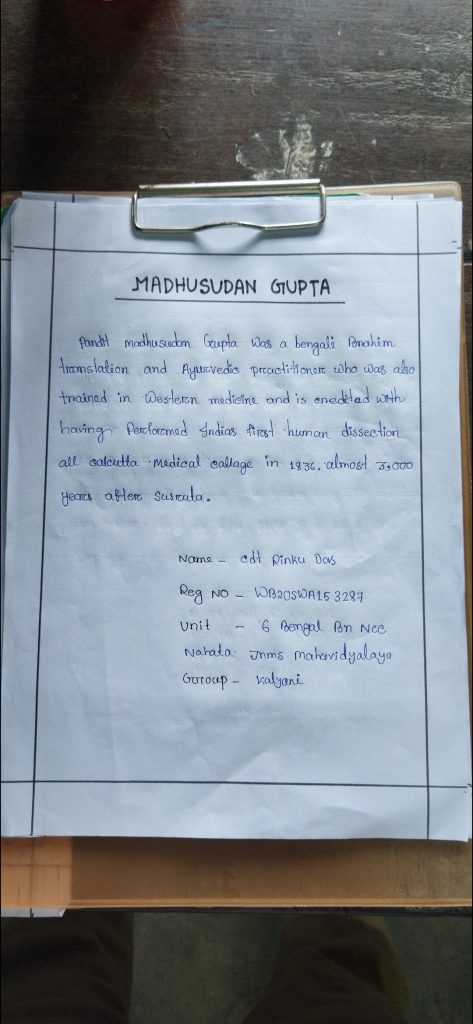 MADHUSUDAN GUPTA
Pandit madhusudan Gupta was a bengali Brahim
translation and Ayurvedic practitioner who was also
trained in Western medicine and is credited with
having Performed Indias first human dissection
all calcutta medical callage in 1836. almost 3,000
years after susruta.
Name - cdt Rinku Das
Reg NO - WB20SWA153287
Unit - 6 Bengal Bn Ncc
Nahata Jnms Mahavidyalaya
Goroup - Kalyani